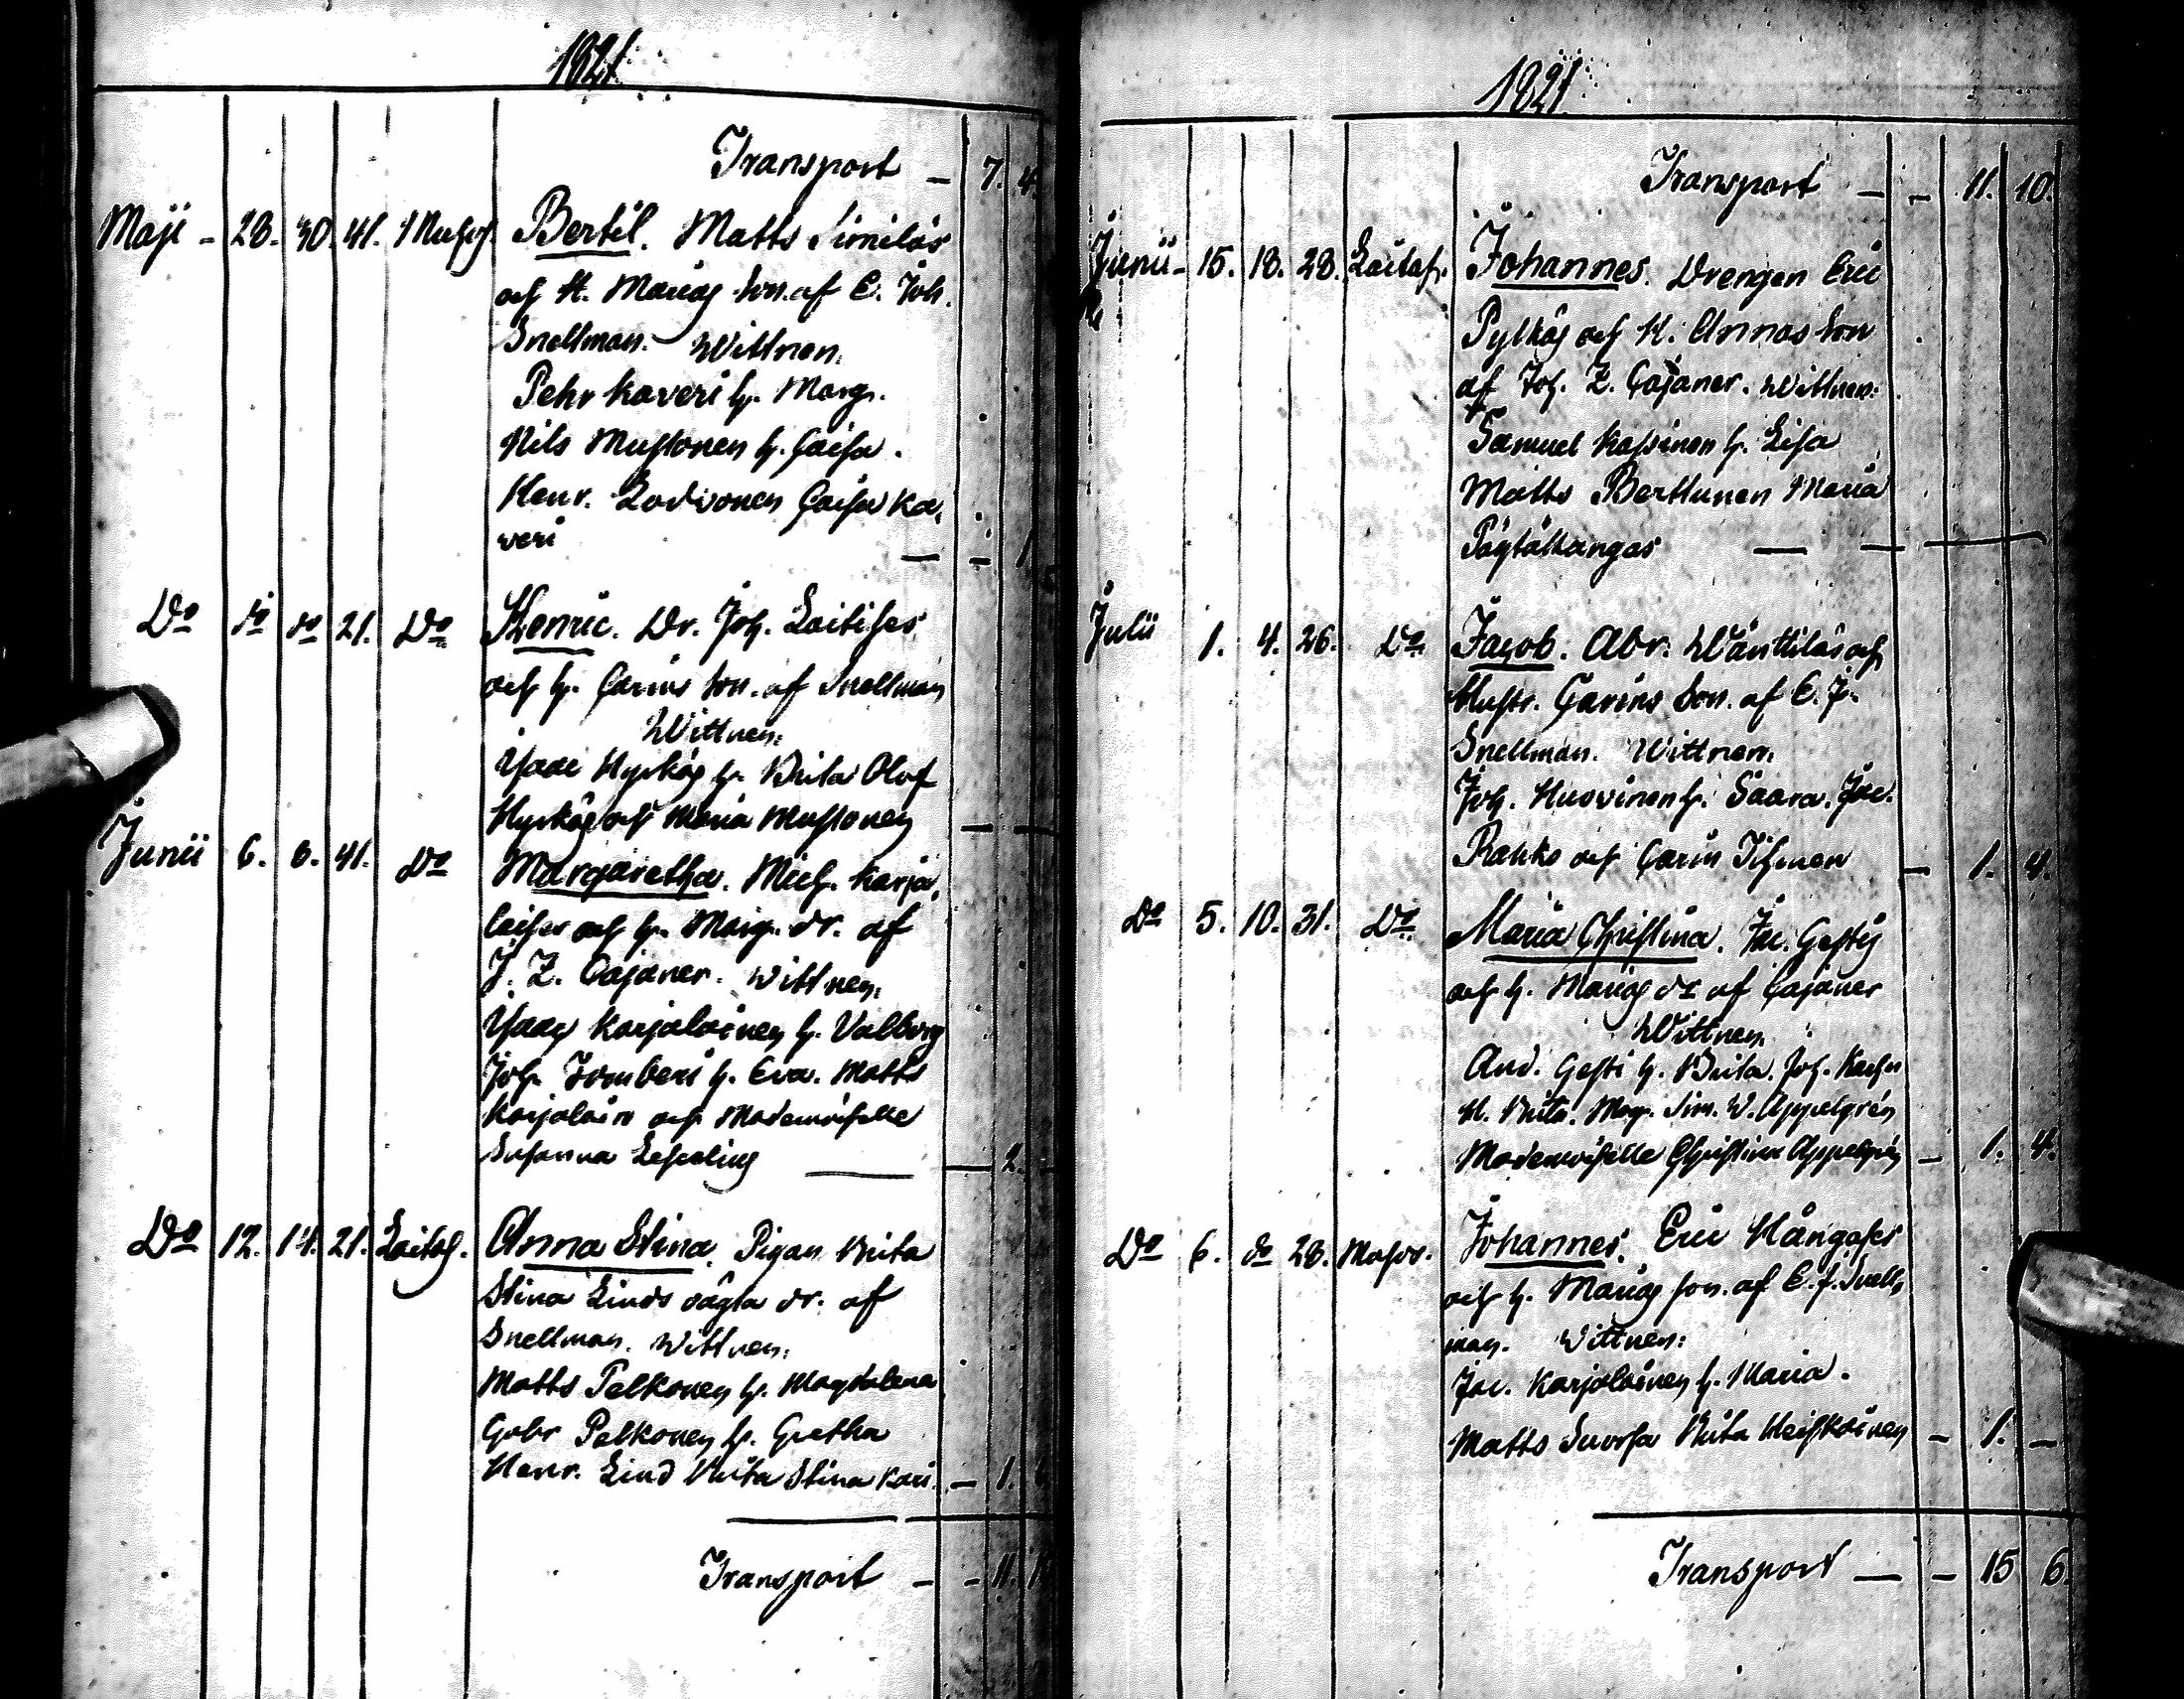 1821
Transport — 7. 4.
Maji - 28. 30. 41. Bertil. Matts Similäs
och H. Marias Son. af E. Joh.
Snellman. Wittnen:
Pehr Kaveri h. Marg.
Nils Mustonen h. Caisa.
Henr. Caisa Ka-
veri — - 1
Do do do 21. Do Henric. Dr. Joh. Laitises
och h. Carins Son. af Snellman
Wittnen:
h. Brita Olof
och Maria Mustonen — —
Junii 6. 6. 41. Do Margaretha. Mich. Karja-
laises och h. Marg. dr. af
J. Z. Cajaner. Wittnen:
Karjalainen h. Valborg
Joh. Tomberi h. Eva. Matts
Karjalain och Mademoiselle
Susanna — — 2.
Do 12. 14. 21. Laitas. Anna Stina. Pigan Brita
Stina Linds oägta dr. af
Snellman. Wittnen:
Matts Pelkonen h. Magdalena
Gabr Pelkonen h. Gretha
Henr. Lind Brita Stina Kari. — 1.
Transport — - 11.
1821
Transport — - 11. 10.
Junii - 15. 18. 28. Laitas. Johannes. Drengen Eric
Pylkäs och H. Annas Son
af Joh. Z. Cajaner. Wittnen:
Samuel Kassinen h. Lisa
Matts Berttunen Maria
— — —
Julii 1. 4. 26. Do Jacob. Abr. Wänttiläs och
Hustr. Carins Son. af E. J.
Snellman. Wittnen:
Joh. Huovinen h. Saara. Jac.
Ranko och Carin Tihinen — 1. 4.
Do 5. 10. 31. Do Maria Christina. Jac. Gästis
och h. Marias dr af Cajaner
Wittnen:
And. Gästi h. Brita. Joh.
H. Brita. Mag. Sim. W. Appelgrén
Mademoiselle Christina Appelgrén — 1. 4.
Do 6. do 28. Johannes. Eric Kångases
och h. Marias son. af E. J. Snell-
man. Wittnen:
Jac. Karjalainen h. Maria.
Matts Suorsa Brita Heiskainen - 1. —
Transport — — 15 6.